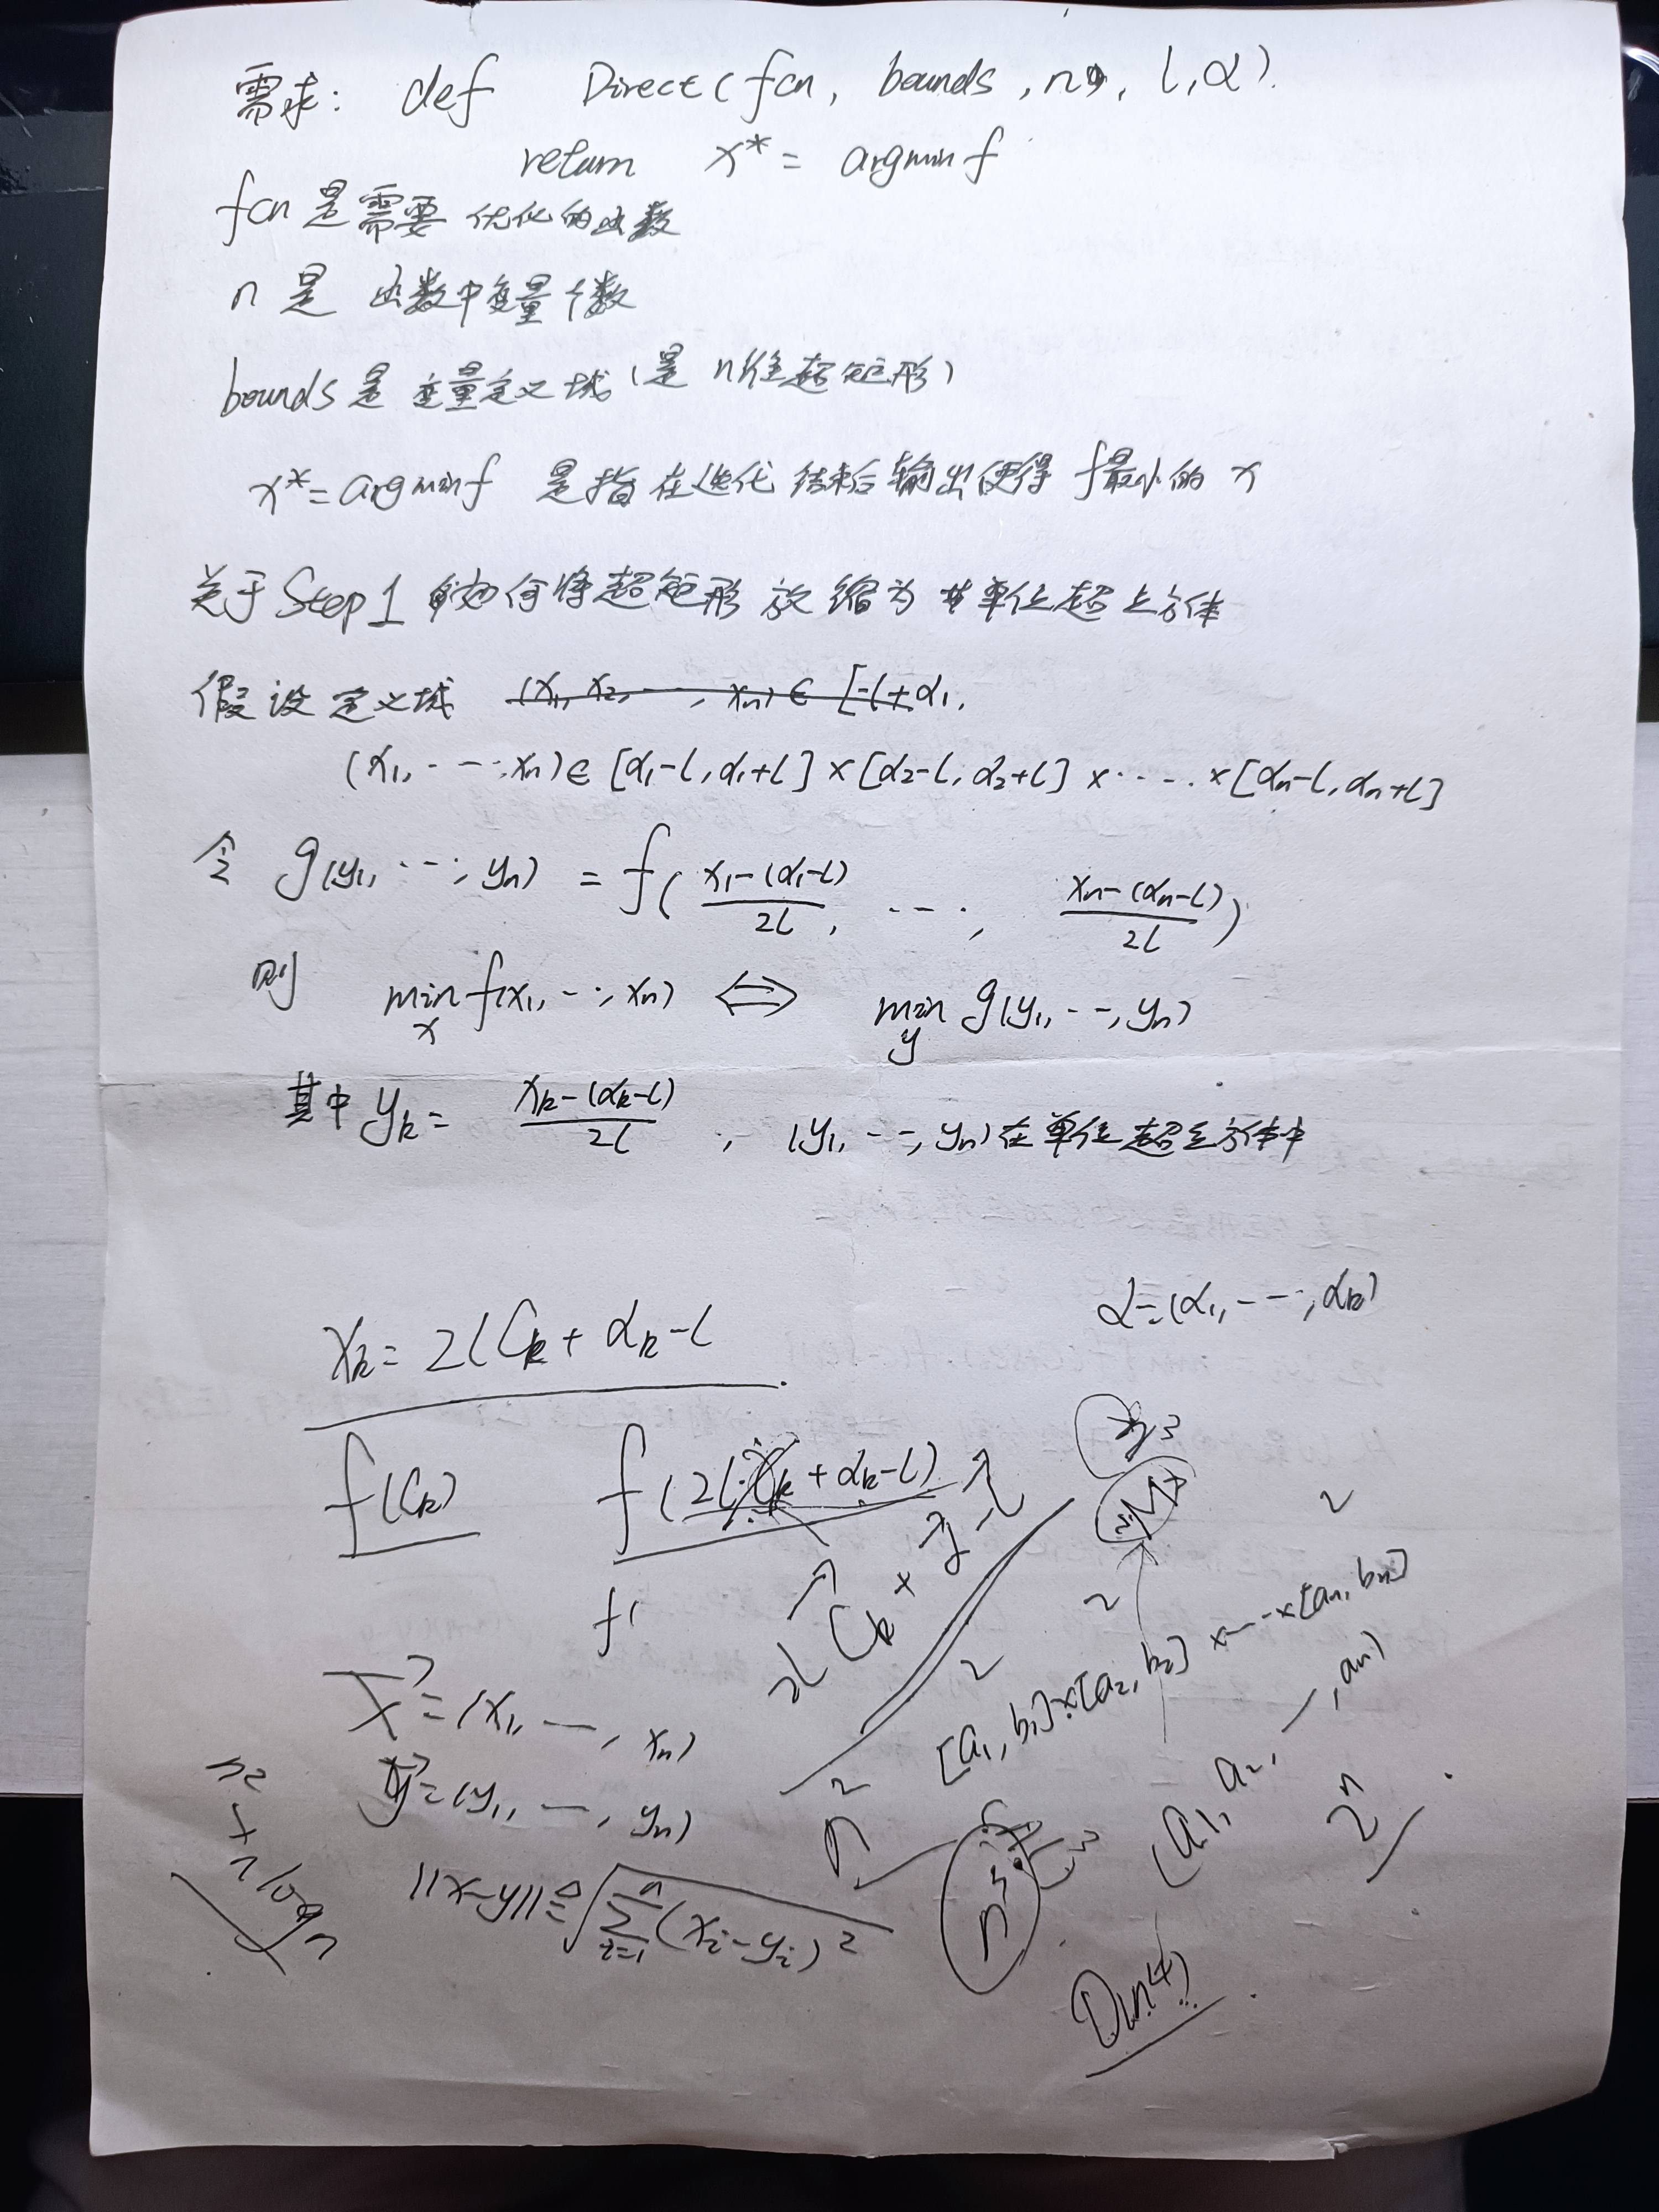 需求: def Direct(fcn, bounds, n, l, α).
return x* = argmin f
fcn 是需要优化的函数
n 是 函数中变量个数
bounds 是 变量定义域 (是 n维超矩形)
x* = argmin f 是指在迭代结束后输出使得 f最小的 x
关于 Step 1 如何将超矩形 放缩为 单位超立方体
假设定义域 (x1, x2, ..., xn) ∈ [-l+α1,
(x1, ..., xn) ∈ [α1-l, α1+l] × [α2-l, α2+l] × ..... × [αn-l, αn+l]
令 g(y1, ..., yn) = f( (x1-(α1-l))/2l, ..., (xn-(αn-l))/2l )
则 min_x f(x1, ..., xn) ⇔ min_y g(y1, ..., yn)
其中 yk = (xk-(αk-l))/2l , (y1, ..., yn) 在单位超立方体中
α=(α1, ..., αk)
xk = 2lCk + αk - l
f(Ck) f(2l·Ck + αk - l)
f(
2
2
2
[a1, b1]×[a2, b2] × ... ×[an, bn]
(a1, a2, —, an)
x⃗ = (x1, —, xn)
y⃗ = (y1, —, yn)
n²
+
n log n
n²
n³
2ⁿ
||x-y|| ≜ √(Σ_{i=1}^{n} (xi-yi)²)
O(n⁴)